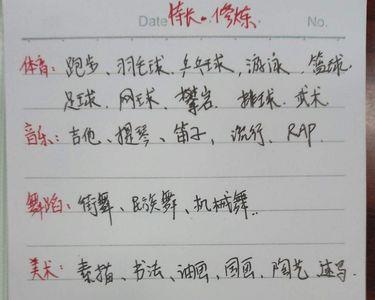 Date 特长。修炼. No.
体育：跑步、羽毛球、乒乓球、游泳、篮球
足球、网球、攀岩、排球、武术
音乐：吉他、提琴、笛子、流行、RAP
舞蹈：街舞、民族舞、机械舞..
美术：素描、书法、油画、国画、陶艺 速写.